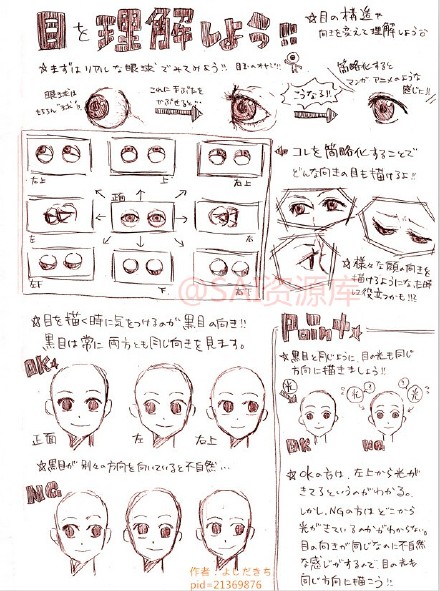 目を理解しよう!!
☆目の構造や
向きを変えて理解しよう
☆まずはリアルな眼球でみてみよう!!
眼球は
これにまぶたを
かぶせると…
こうなる!!
簡略化すると
マンガ・アニメのような
感じに!!
左上
上
右上
正面
左
右
左下
下
右下
コレを簡略化することで
どんな向きの目も描けるよ!!
☆様々な顔の向きを
描けるようになる時
に役立つかも!!
@SAI资源库
☆目を描く時に気をつけるのが黒目の向き!!
黒目は常に両方とも同じ向きを見ます。
OK
正面
左
右上
☆黒目が別々の方向を向いていると不自然…
NG
Point☆
☆黒目と同じように、目の光も同じ
方向に描きましょう!!
光
光
光
OK
NG
☆OKの方は、左上から光が
きてるというのがわかる。
しかし、NGの方はどこから
光がきているのかがわからない。
目の向きが同じなのに不自然
な感じがするので目の光も
同じ方向に描こう!!
作者：よしだきち
pid=21369876